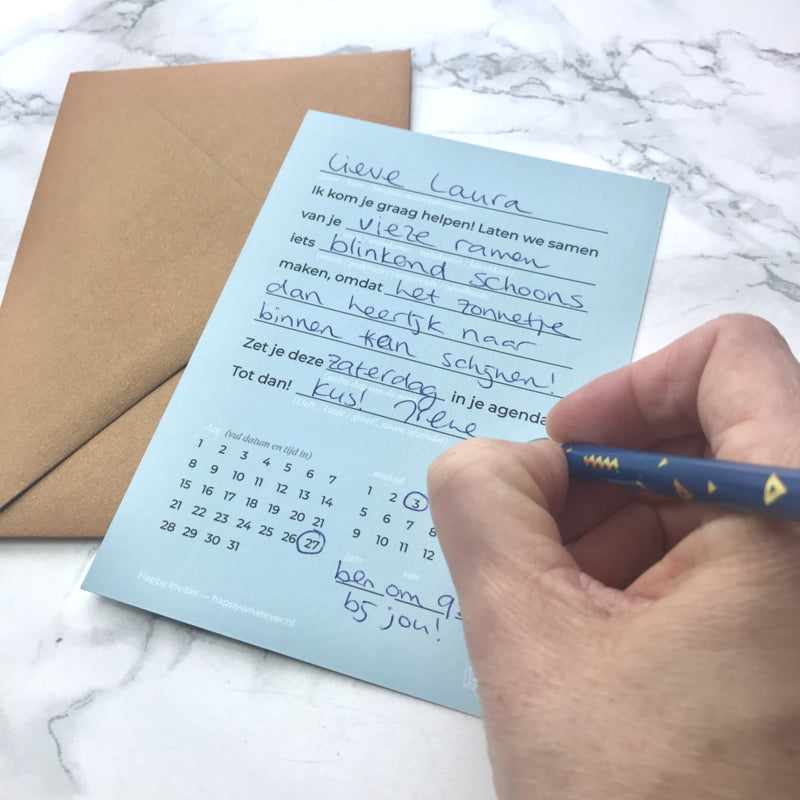 Lieve Laura
Ik kom je graag helpen! Laten we samen
van je vieze ramen
iets blinkend schoons
maken, omdat het zonnetje
dan heerlijk naar
binnen kan schijnen!
Zet je deze zaterdag in je agenda
Tot dan! Kus! Irene
dag (vul datum en tijd in)
1 2 3 4 5 6 7
8 9 10 11 12 13 14
15 16 17 18 19 20 21
21 22 23 24 25 26 27
28 29 30 31
maand
1 2 3
5 6 7 8
9 10 11 12
jaar van
ben om 9
bij jou!
Happy Invites — happywhatever.nl